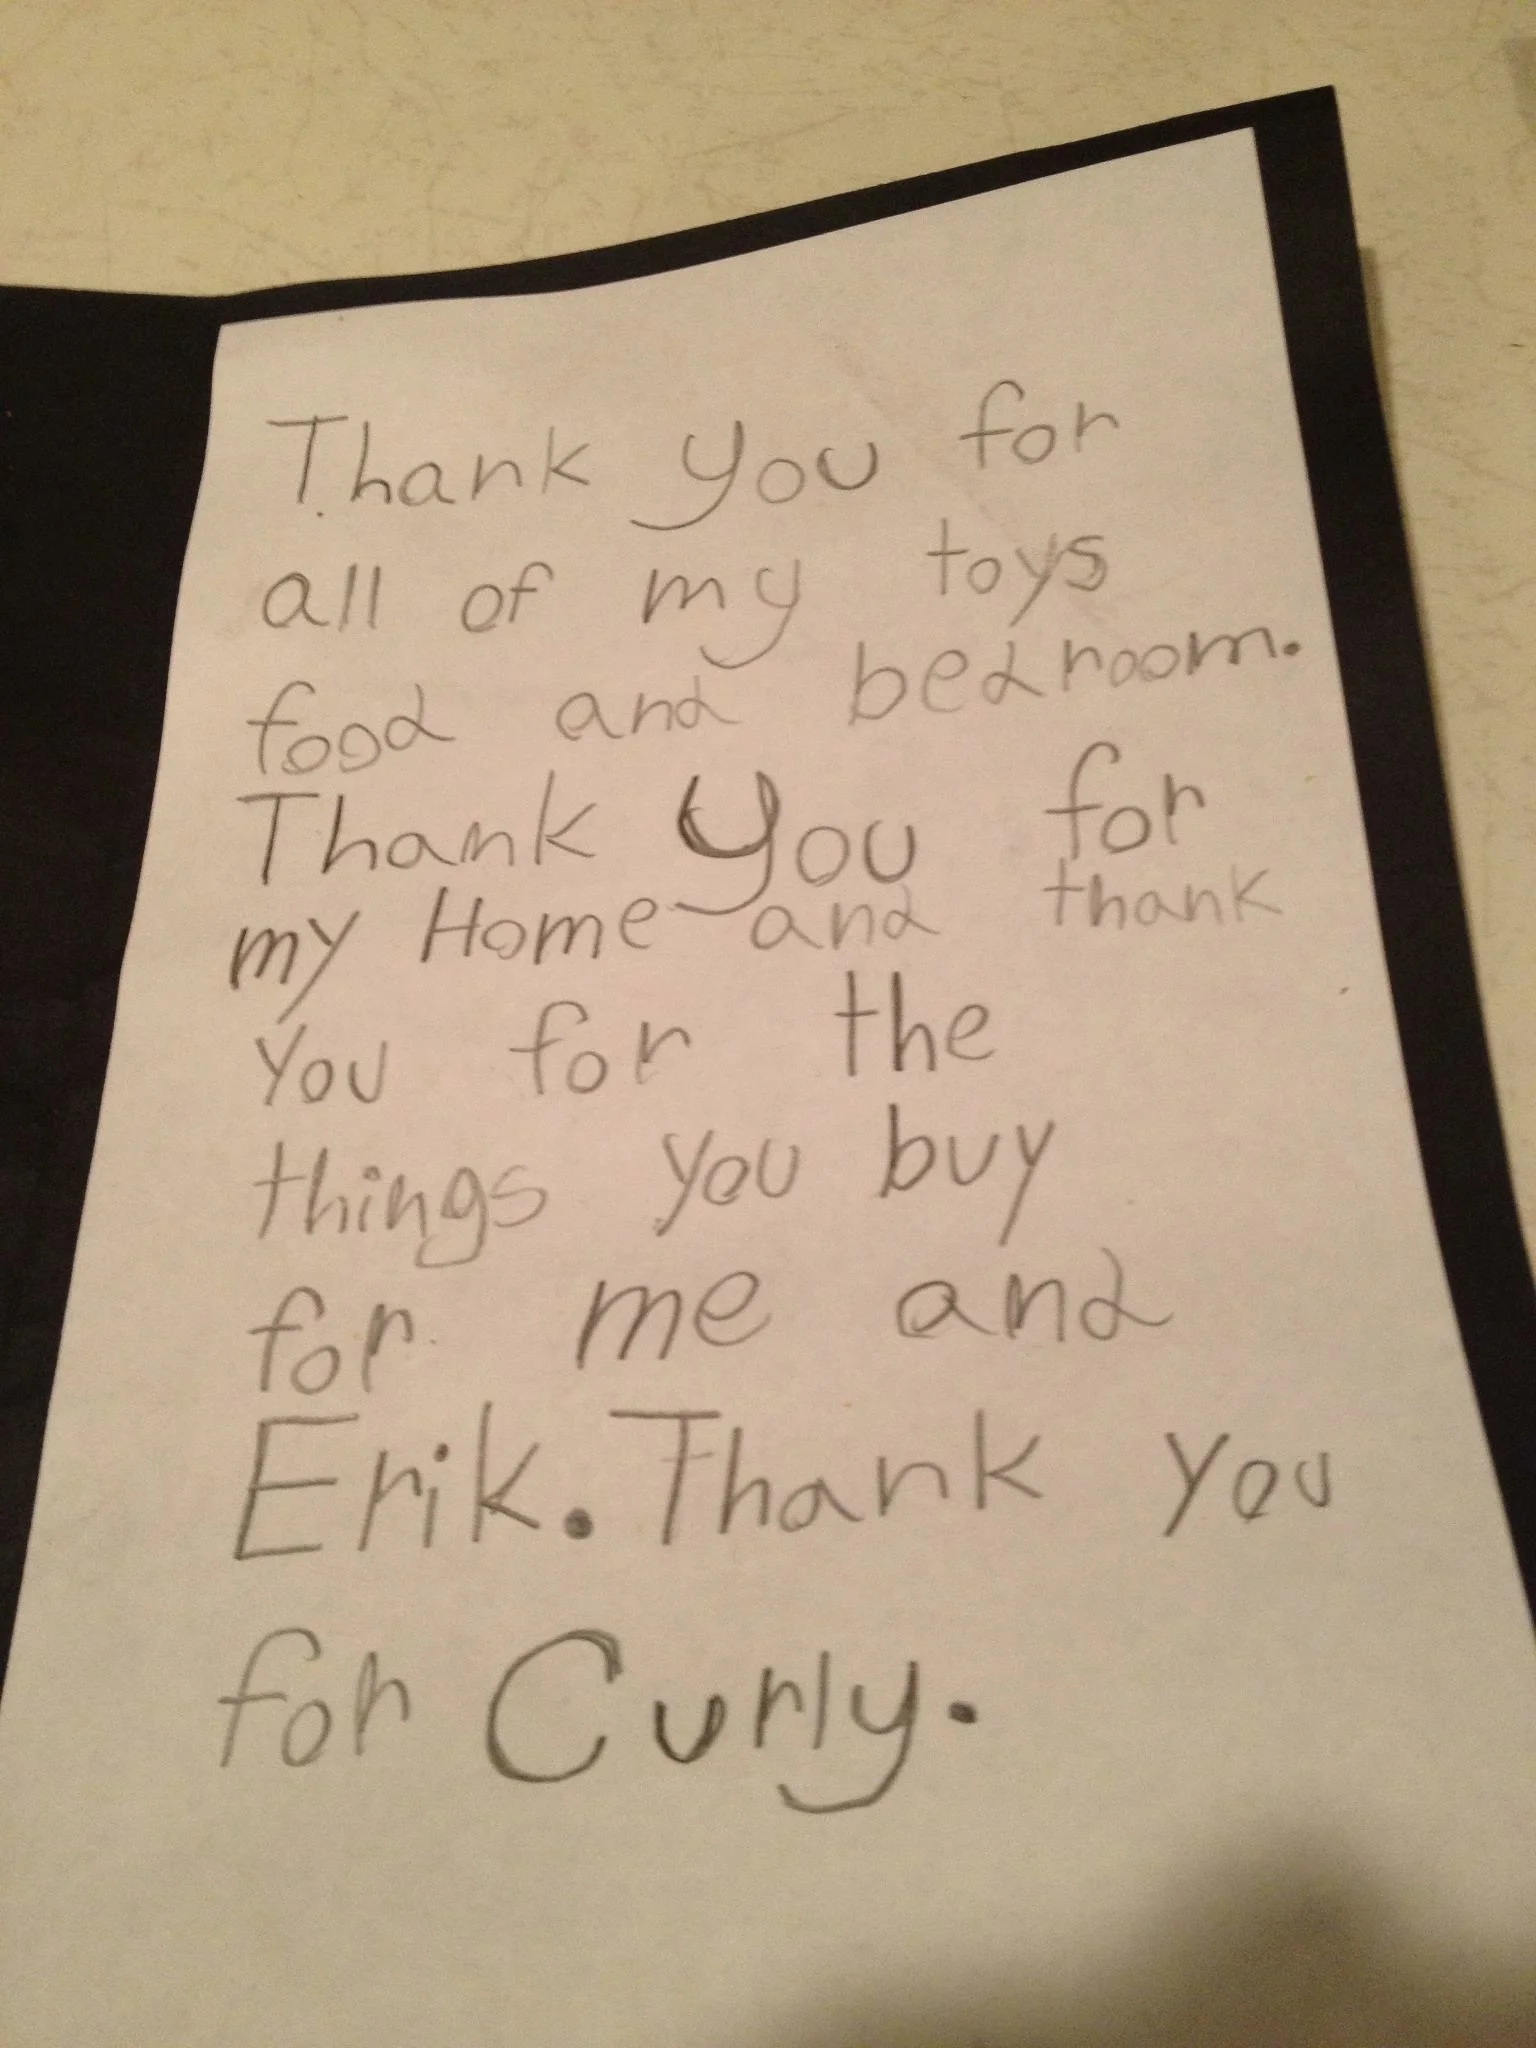 Thank you for
all of my toys
food and bedroom.
Thank you for
my Home and thank
you for the
things you buy
for me and
Erik. Thank you
for Curly.